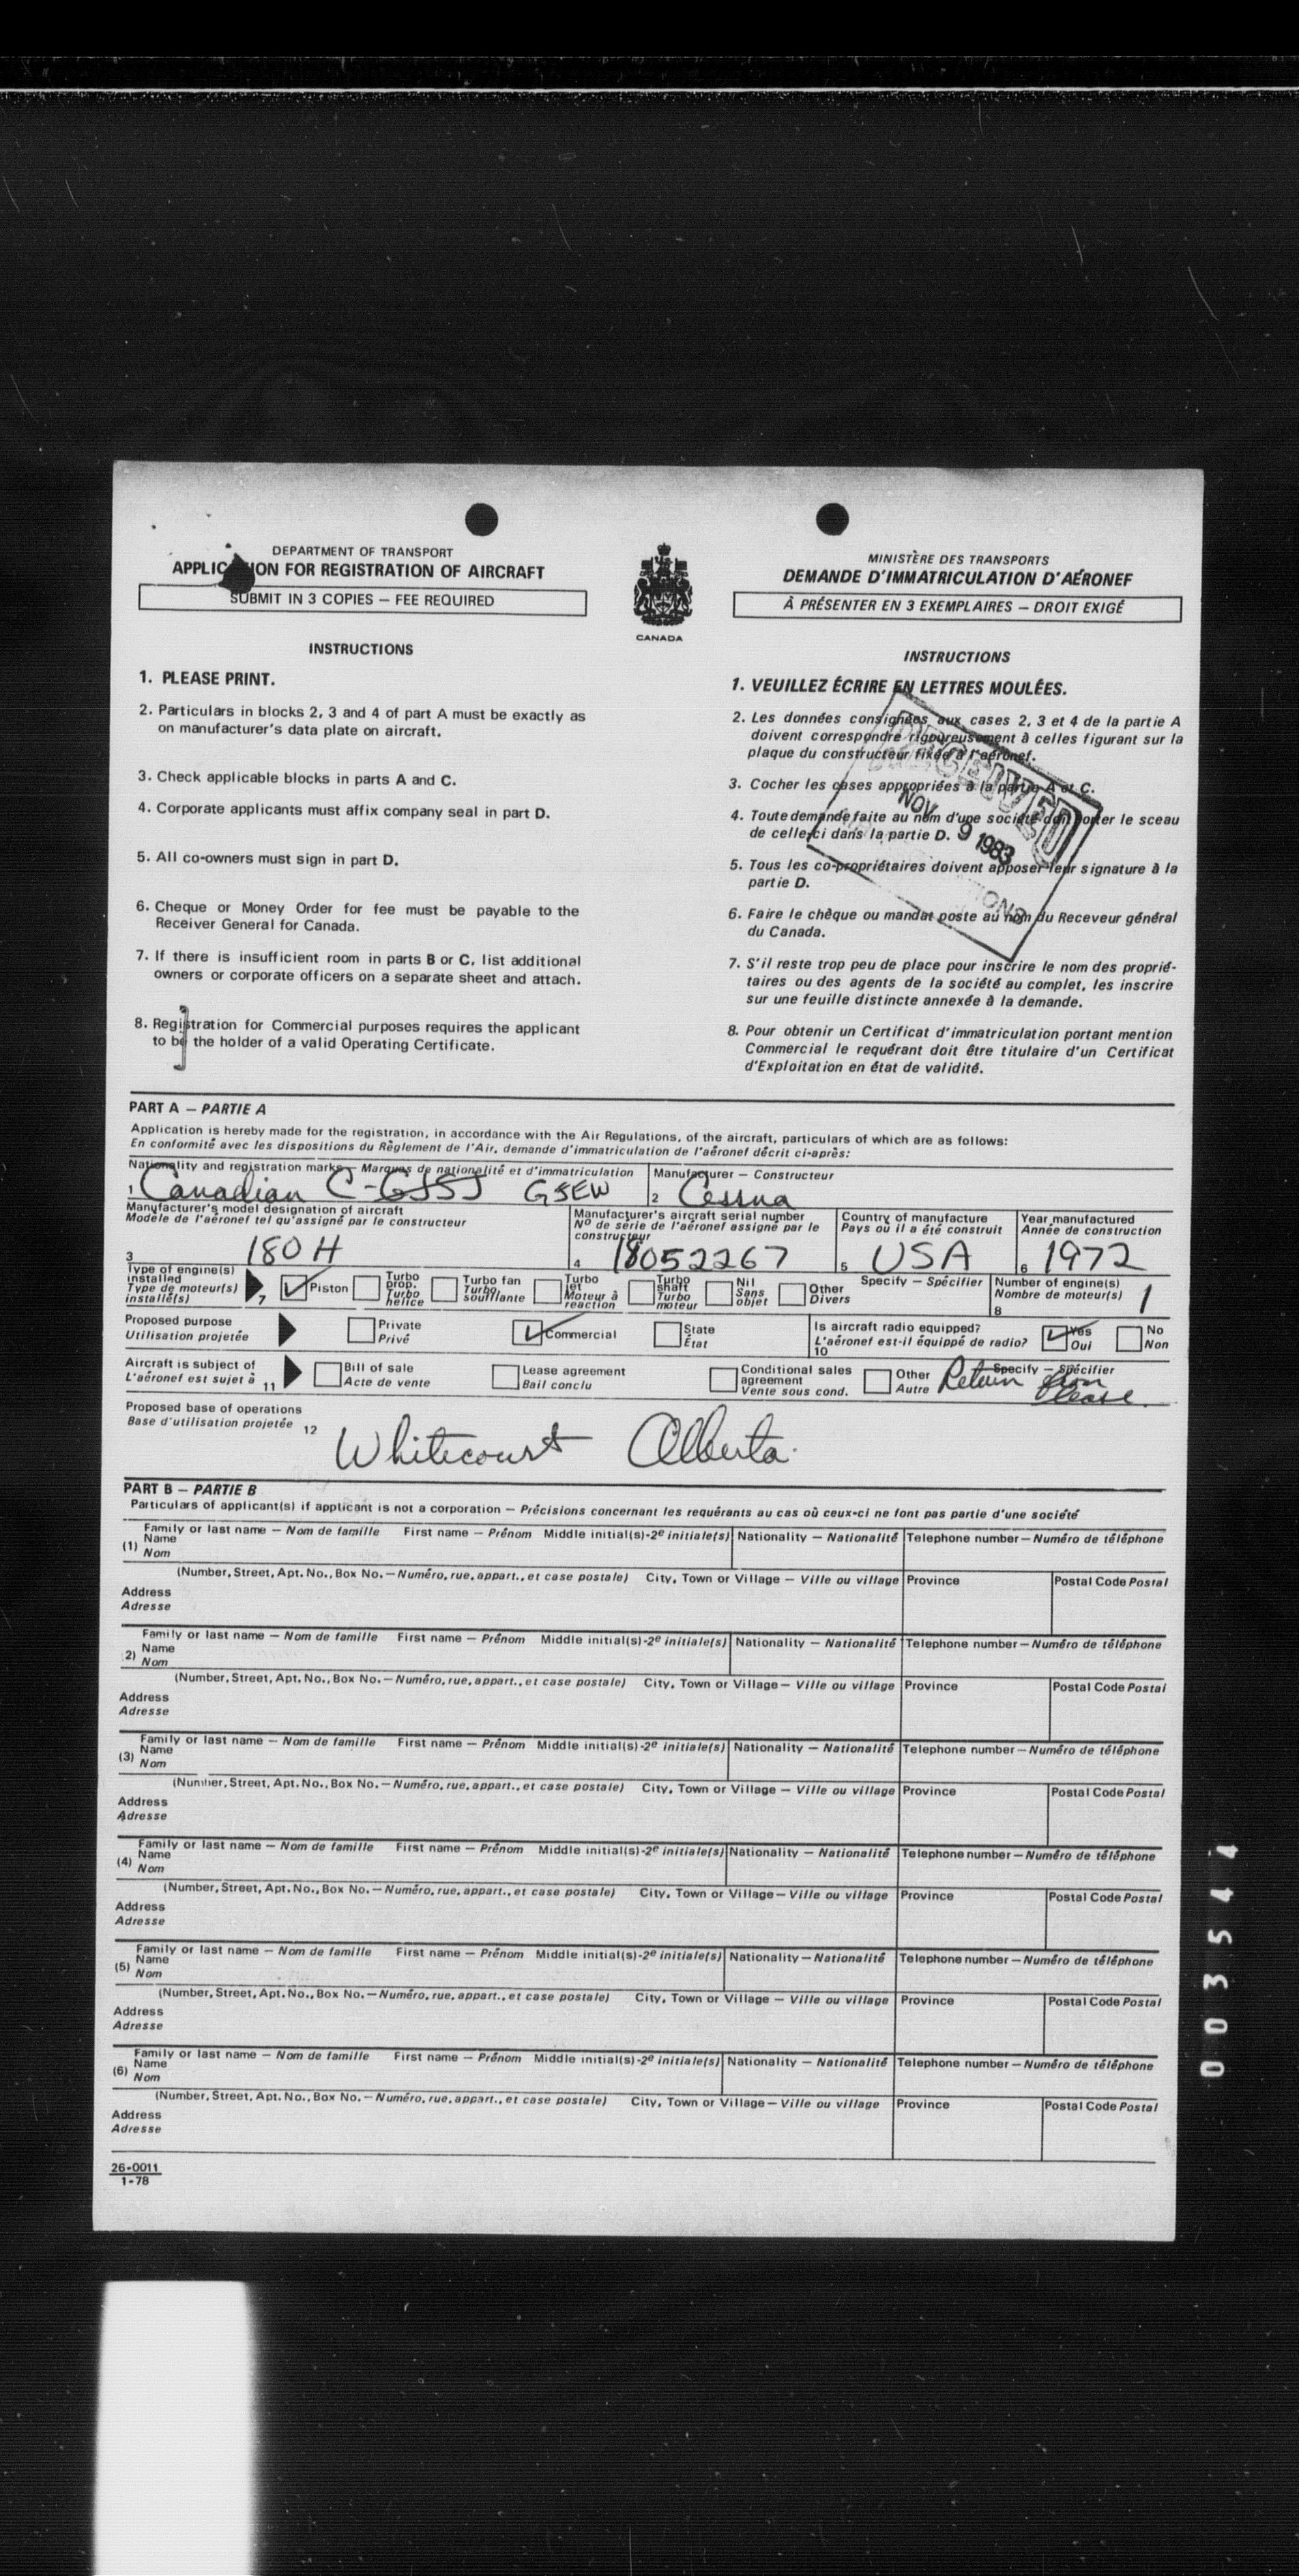 DEPARTMENT OF TRANSPORT
APPLIC ION FOR REGISTRATION OF AIRCRAFT
SUBMIT IN 3 COPIES — FEE REQUIRED
CANADA
MINISTÈRE DES TRANSPORTS
DEMANDE D'IMMATRICULATION D'AÉRONEF
À PRÉSENTER EN 3 EXEMPLAIRES — DROIT EXIGÉ
INSTRUCTIONS
1. PLEASE PRINT.
2. Particulars in blocks 2, 3 and 4 of part A must be exactly as
on manufacturer's data plate on aircraft.
3. Check applicable blocks in parts A and C.
4. Corporate applicants must affix company seal in part D.
5. All co-owners must sign in part D.
6. Cheque or Money Order for fee must be payable to the
Receiver General for Canada.
7. If there is insufficient room in parts B or C, list additional
owners or corporate officers on a separate sheet and attach.
8. Registration for Commercial purposes requires the applicant
to be the holder of a valid Operating Certificate.
INSTRUCTIONS
1. VEUILLEZ ÉCRIRE EN LETTRES MOULÉES.
2. Les données consignées aux cases 2, 3 et 4 de la partie A
doivent correspondre rigoureusement à celles figurant sur la
plaque du constructeur fixée à l'aéronef.
3. Cocher les cases appropriées à la partie A et C.
4. Toute demande faite au nom d'une société doit porter le sceau
de celle-ci dans la partie D.
5. Tous les co-propriétaires doivent apposer leur signature à la
partie D.
6. Faire le chèque ou mandat poste au nom du Receveur général
du Canada.
7. S'il reste trop peu de place pour inscrire le nom des proprié-
taires ou des agents de la société au complet, les inscrire
sur une feuille distincte annexée à la demande.
8. Pour obtenir un Certificat d'immatriculation portant mention
Commercial le requérant doit être titulaire d'un Certificat
d'Exploitation en état de validité.
RECEIVED
NOV 9 1983
PART A — PARTIE A
Application is hereby made for the registration, in accordance with the Air Regulations, of the aircraft, particulars of which are as follows:
En conformité avec les dispositions du Règlement de l'Air, demande d'immatriculation de l'aéronef décrit ci-après:
Nationality and registration marks — Marques de nationalité et d'immatriculation Manufacturer — Constructeur
1 Canadian C-GJSJ GSEW 2 Cessna
Manufacturer's model designation of aircraft
Modèle de l'aéronef tel qu'assigné par le constructeur
3 180 H
Manufacturer's aircraft serial number
Nº de série de l'aéronef assigné par le
constructeur
4 18052267
Country of manufacture
Pays où il a été construit
5 USA
Year manufactured
Année de construction
6 1972
Type of engine(s)
installed
Type de moteur(s)
installé(s) 7
Piston
Turbo
prop.
Turbo
hélice
Turbo fan
Turbo
soufflante
Turbo
jet
Moteur à
réaction
Turbo
shaft
Turbo
moteur
Nil
Sans
objet
Other
Divers
Specify — Spécifier
Number of engine(s)
Nombre de moteur(s)
8 1
Proposed purpose
Utilisation projetée
Private
Privé
Commercial
State
État
Is aircraft radio equipped?
L'aéronef est-il équipé de radio?
10
Yes
Oui
No
Non
Aircraft is subject of
L'aéronef est sujet à 11
Bill of sale
Acte de vente
Lease agreement
Bail conclu
Conditional sales
agreement
Vente sous cond.
Other
Autre
Specify — Spécifier
Return from
lease
Proposed base of operations
Base d'utilisation projetée 12
Whitecourt Alberta.
PART B — PARTIE B
Particulars of applicant(s) if applicant is not a corporation — Précisions concernant les requérants au cas où ceux-ci ne font pas partie d'une société
Family or last name — Nom de famille First name — Prénom Middle initial(s)-2e initiale(s) Nationality — Nationalité Telephone number — Numéro de téléphone
(1) Name
Nom
(Number, Street, Apt. No., Box No. — Numéro, rue, appart., et case postale) City, Town or Village — Ville ou village Province Postal Code Postal
Address
Adresse
Family or last name — Nom de famille First name — Prénom Middle initial(s)-2e initiale(s) Nationality — Nationalité Telephone number — Numéro de téléphone
2) Name
Nom
(Number, Street, Apt. No., Box No. — Numéro, rue, appart., et case postale) City, Town or Village — Ville ou village Province Postal Code Postal
Address
Adresse
Family or last name — Nom de famille First name — Prénom Middle initial(s)-2e initiale(s) Nationality — Nationalité Telephone number — Numéro de téléphone
(3) Name
Nom
(Number, Street, Apt. No., Box No. — Numéro, rue, appart., et case postale) City, Town or Village — Ville ou village Province Postal Code Postal
Address
Adresse
Family or last name — Nom de famille First name — Prénom Middle initial(s)-2e initiale(s) Nationality — Nationalité Telephone number — Numéro de téléphone
(4) Name
Nom
(Number, Street, Apt. No., Box No. — Numéro, rue, appart., et case postale) City, Town or Village — Ville ou village Province Postal Code Postal
Address
Adresse
Family or last name — Nom de famille First name — Prénom Middle initial(s)-2e initiale(s) Nationality — Nationalité Telephone number — Numéro de téléphone
(5) Name
Nom
(Number, Street, Apt. No., Box No. — Numéro, rue, appart., et case postale) City, Town or Village — Ville ou village Province Postal Code Postal
Address
Adresse
Family or last name — Nom de famille First name — Prénom Middle initial(s)-2e initiale(s) Nationality — Nationalité Telephone number — Numéro de téléphone
(6) Name
Nom
(Number, Street, Apt. No., Box No. — Numéro, rue, appart., et case postale) City, Town or Village — Ville ou village Province Postal Code Postal
Address
Adresse
26-0011
1-78
003544